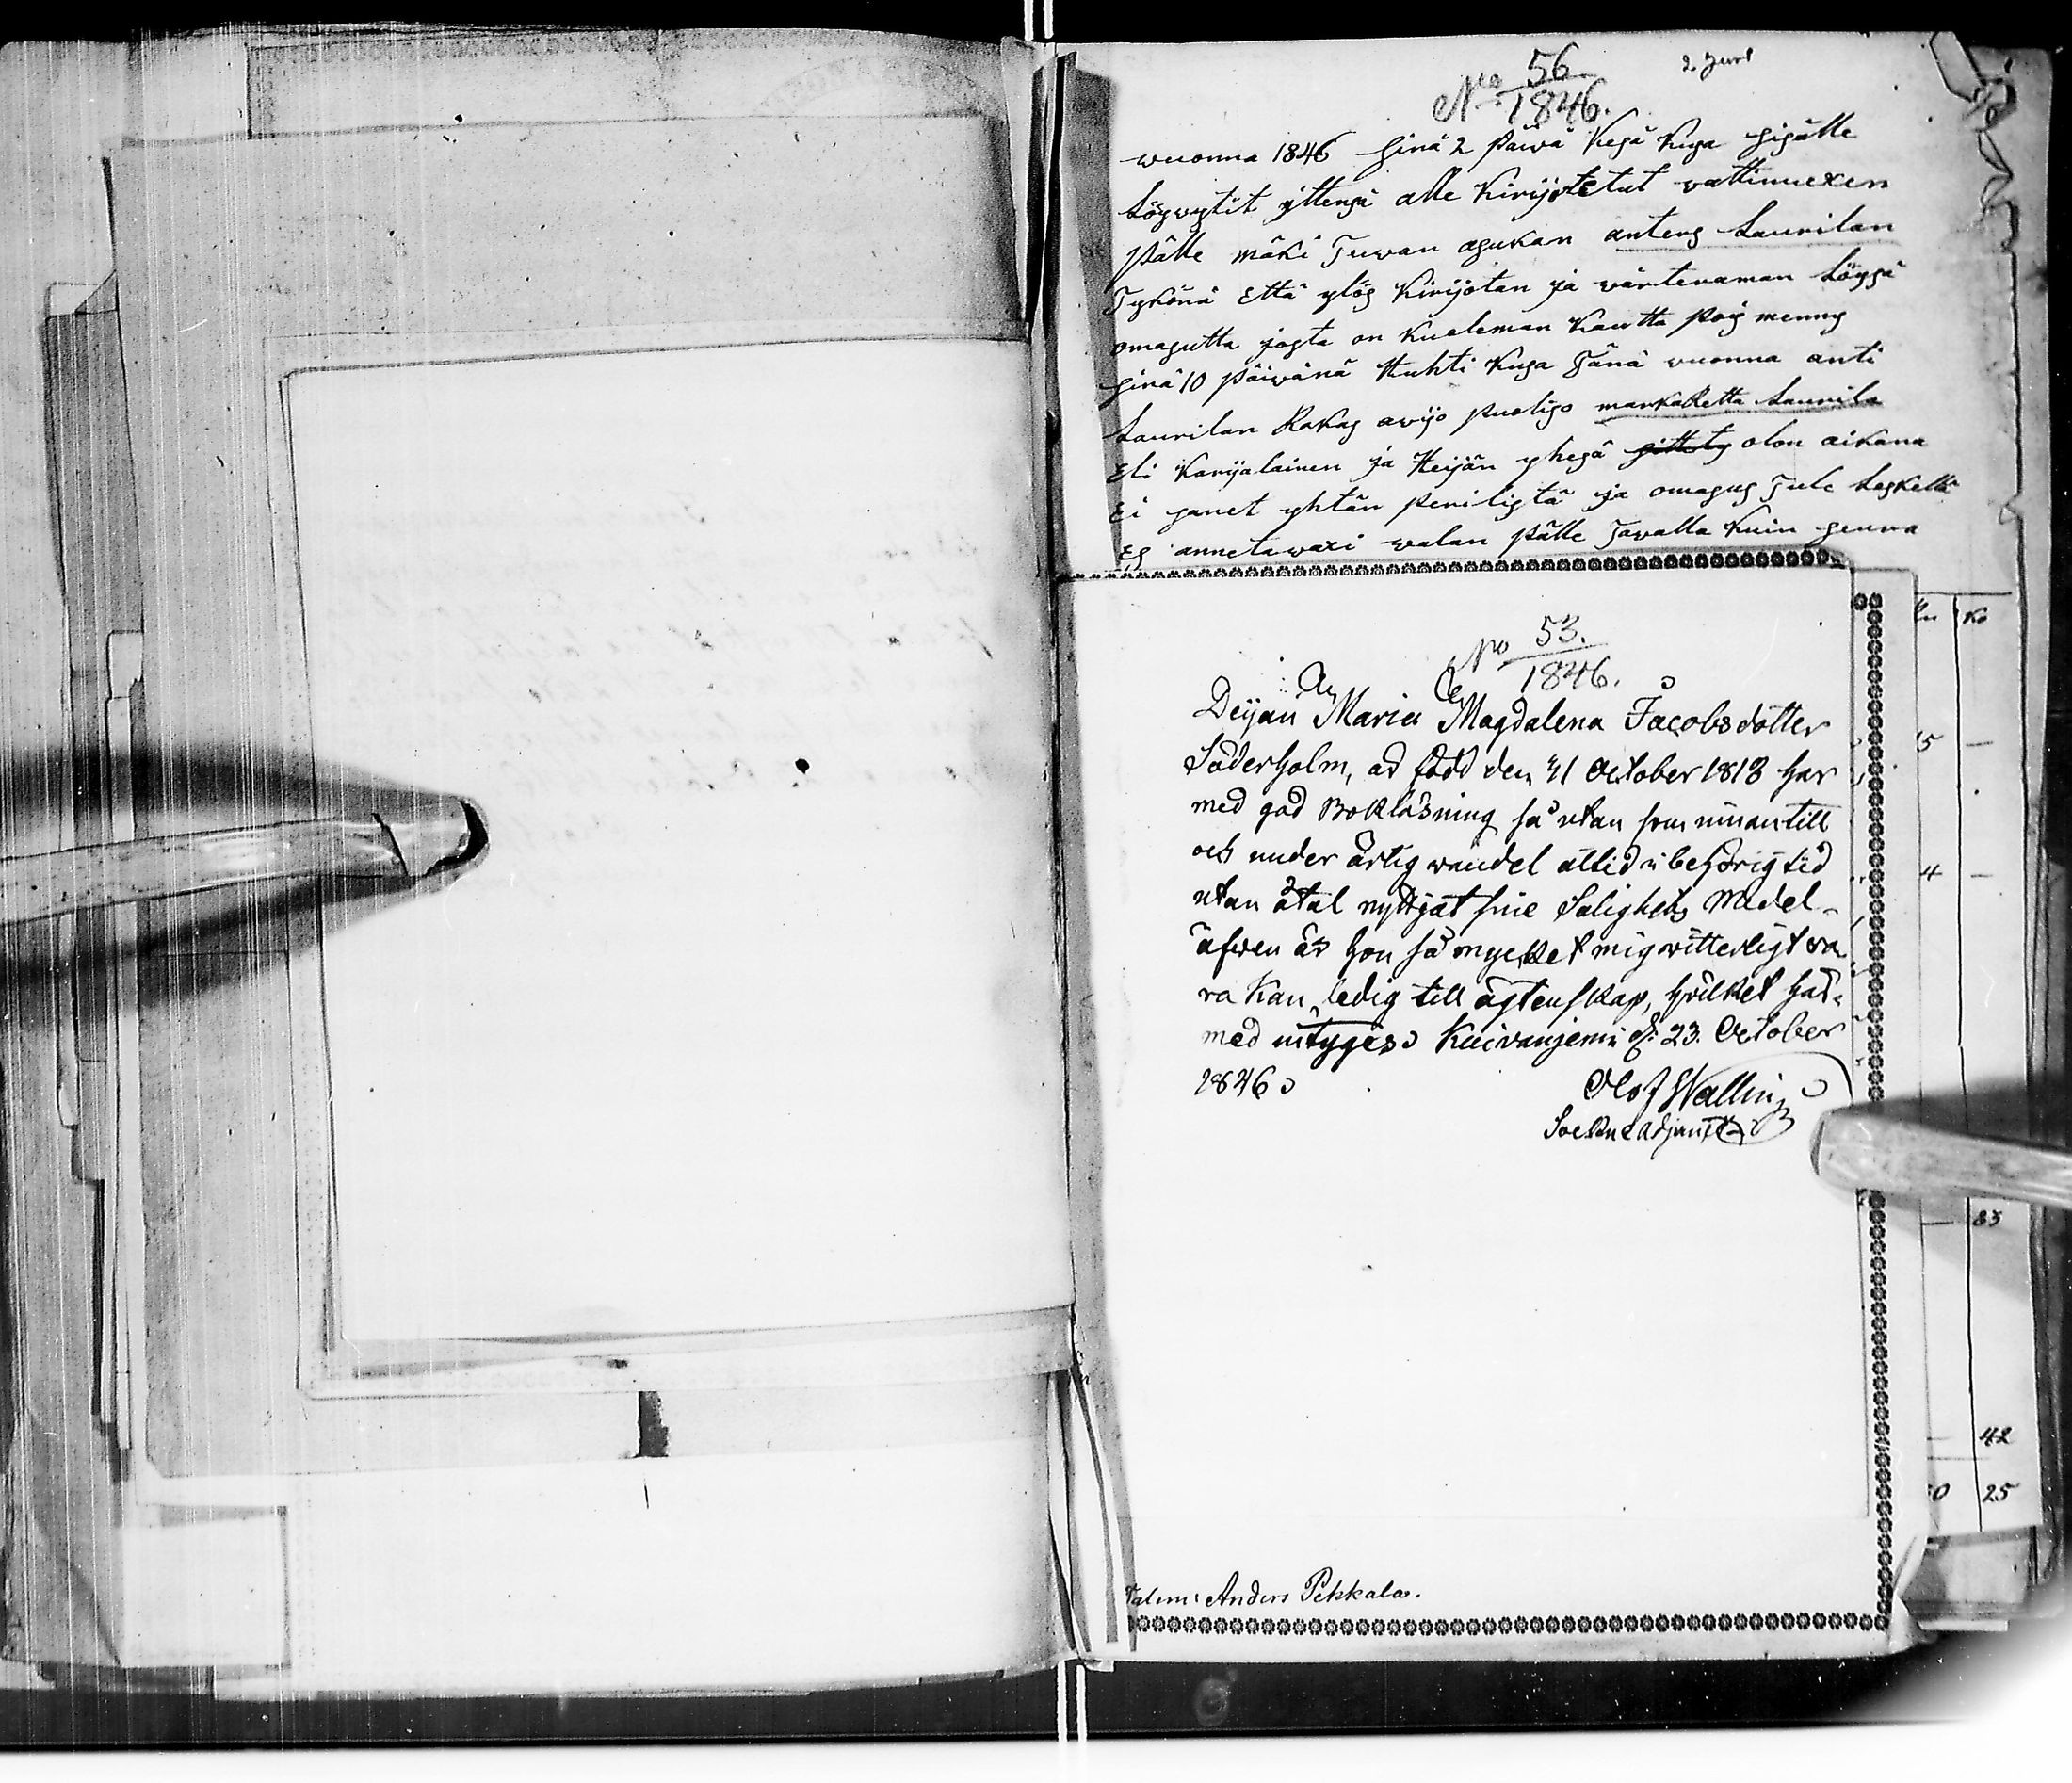 2 Juni
No 56
1846.
wuonna 1846 sinä 2 päiwä Kesä Kuga sisälle
Löywytit ittensä alle Kirijotetut wattimuxen
pälle mäki Tuwan asukan anters Laurilan
Tykönä Että ylös Kirijotan ja wärteraman Löysä
omasutta josta on Kuoleman Kautta pois menny
sinä 10 päiwänä Huhti Kuga Tänä wuonna anti
Laurilan Rakas awijo puoliso markaretta Laurila
Eli Karijalainen ja Heijän yhesä olon aikana
Ei sanet yhtän perilistä ja omasus Tule Leskellä
Es annetawaxi walan pälle Tawalla Kuin seuraa
No 53.
1846.
Deijan Maria Magdalena Jacobsdotter
Söderholm, ad född den 31 October 1818 har
med god Bokläsning så utan som innantill
och under ärlig wandel altid i behörig tid
utan åtal nyttjat sine Salighets Medel-
äfwen är hon så mycket mig witterligt wa
ra kan, ledig till ägtenskap, hwilket här-
med intygas Kuivaniemi d: 23. October
1846
Olof Wallin
Sockneadjunkt
Anders Pekkala.
Ko
5 —
4 —
— 83
— 42
0 25